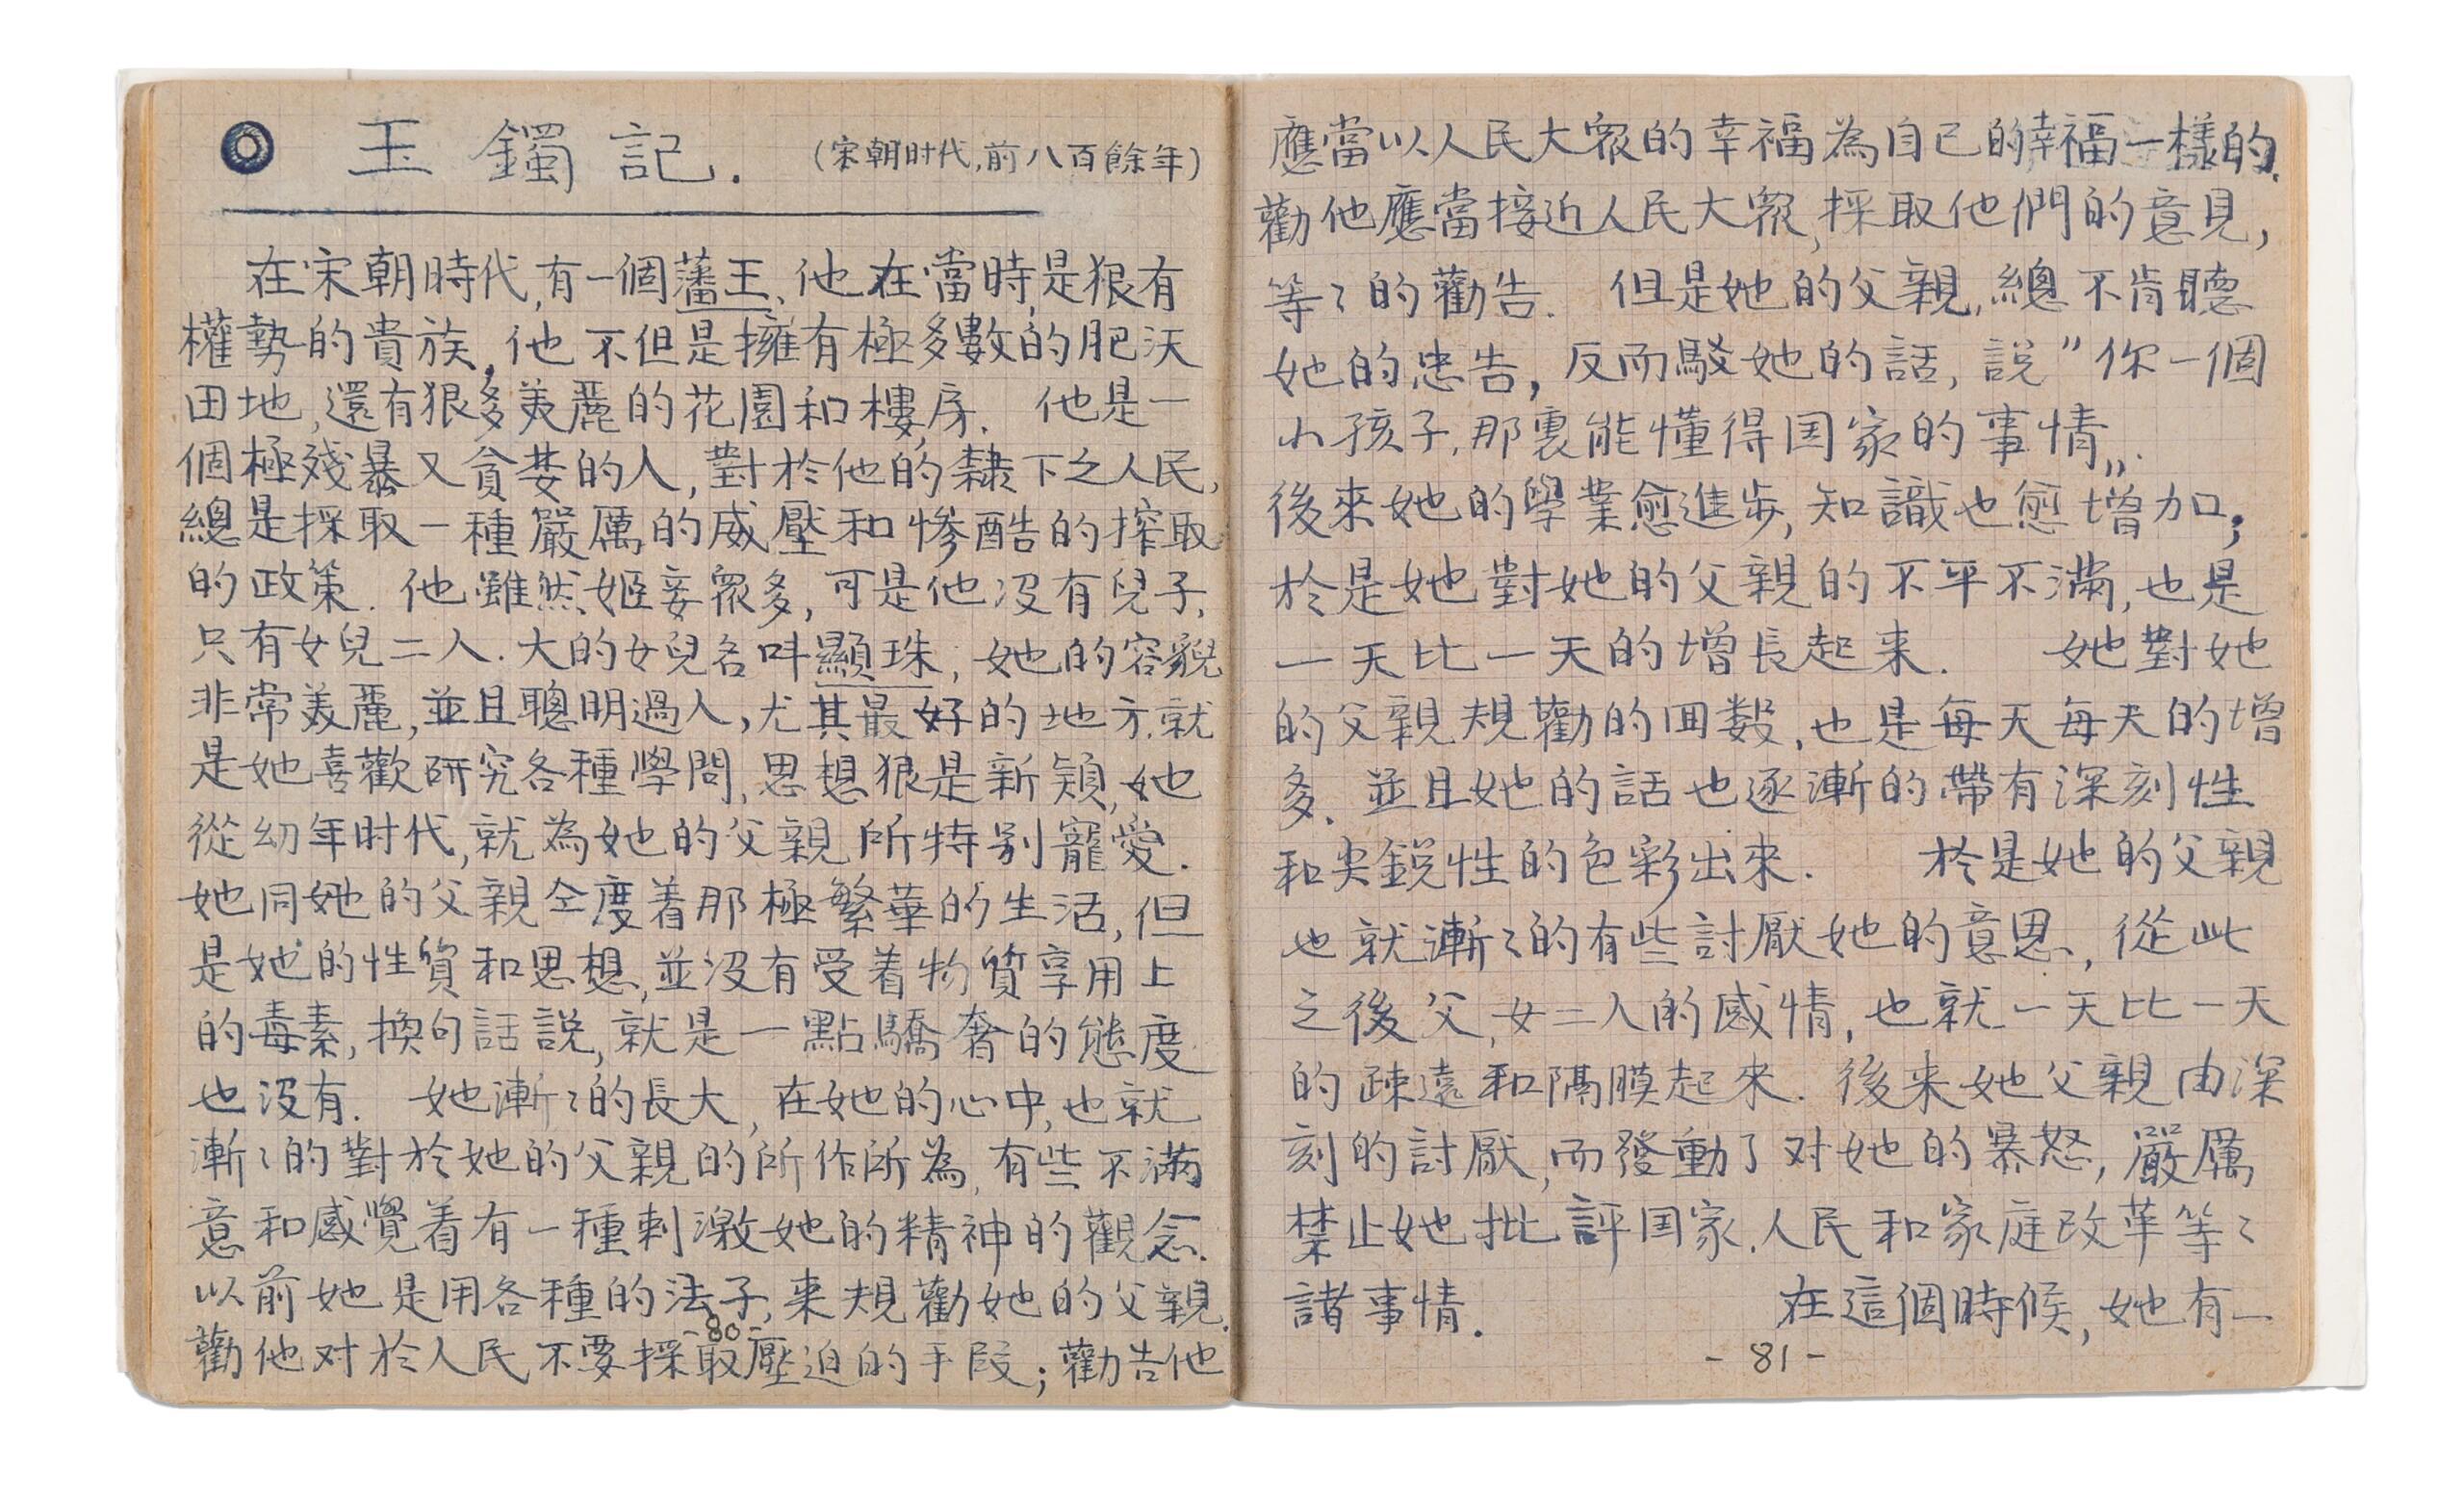 玉鐲記. (宋朝时代,前八百餘年)
在宋朝時代,有一個藩王、他在當時,是狠有
權勢的貴族,他不但是擁有極多數的肥沃
田地,還有狠多美麗的花園和樓房. 他是一
個極殘暴又貪婪的人,對於他的隸下之人民,
總是採取一種嚴厲的威壓和慘酷的搾取
的政策. 他雖然姬妾眾多,可是他沒有兒子,
只有女兒二人.大的女兒名叫顯珠,她的容貌
非常美麗,並且聰明過人,尤其最好的地方,就
是她喜歡研究各種學問,思想狠是新穎,她
從幼年时代,就為她的父親所特別寵愛.
她同她的父親仝度着那極繁華的生活,但
是她的性質和思想,並沒有受着物質享用上
的毒素,換句話說,就是一點驕奢的態度
也沒有. 她漸〻的長大,在她的心中,也就
漸〻的對於她的父親的所作所為,有些不滿
意和感覺着有一種刺激她的精神的觀念.
以前她是用各種的法子,来規勸她的父親.
勸他对於人民不要採取壓迫的手段;勸告他
-80-
應當以人民大眾的幸福為自己的幸福一樣的.
勸他應當接近人民大眾,採取他們的意見,
等〻的勸告. 但是她的父親,總不肯聽
她的忠告,反而駁她的話,説"你一個
小孩子,那裏能懂得囯家的事情„.
後來她的學業愈進步,知識也愈增加,
於是她對她的父親的不平不滿,也是
一天比一天的增長起来. 她對她
的父親規勸的回数,也是每天每天的增
多.並且她的話也逐漸的帶有深刻性
和尖銳性的色彩出來. 於是她的父親
也就漸〻的有些討厭她的意思,從此
之後父,女二人的感情,也就一天比一天
的疎遠和隔膜起来. 後来她父親由深
刻的討厭,而發動了对她的暴怒,嚴厲
禁止她批評囯家.人民和家庭改革等〻
諸事情. 在這個時候,她有一
-81-